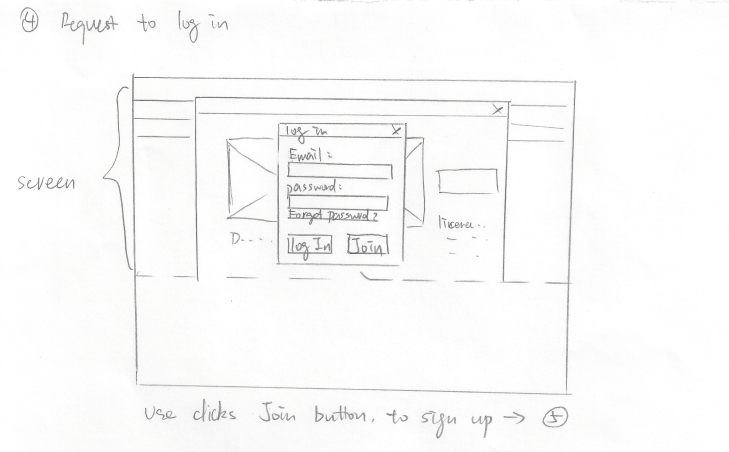 ④ Request to log in
screen
log in X
Email:
password:
Forgot password?
log In Join
D....
X
Use clicks Join button, to sign up → ⑤